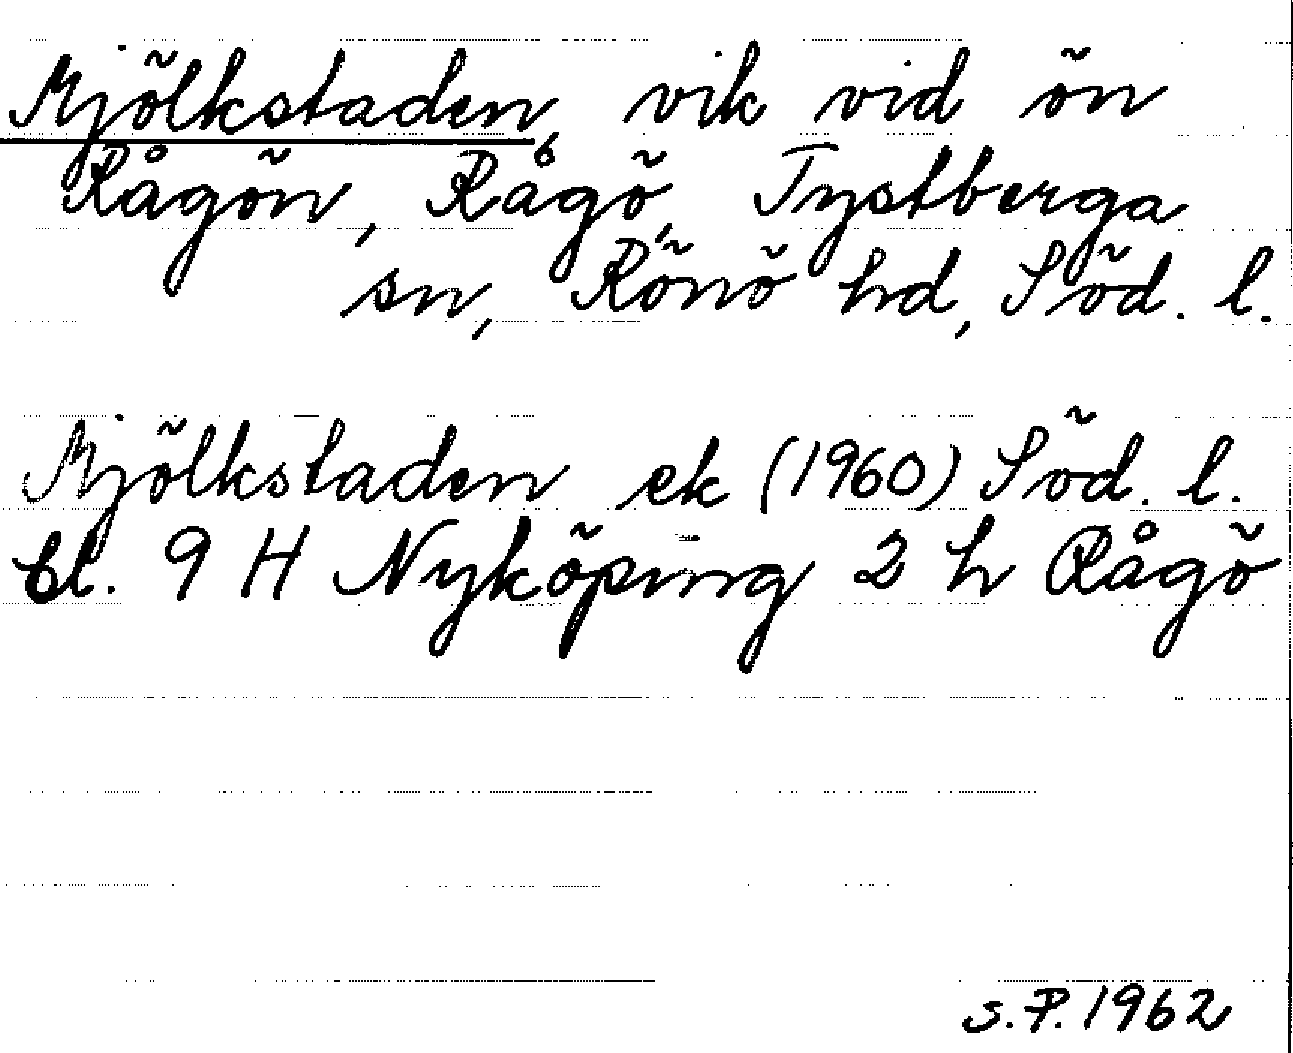 Mjölkstaden, vik vid ön
Rågön, Rågö, Tystberga
sn, Rönö hd, Söd. l.
Mjölkstaden ek (1960) Söd. l.
bl. 9 H Nyköping 2 h Rågö
S.P. 1962